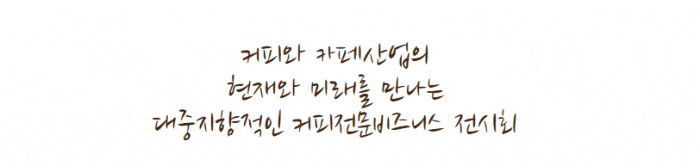 커피와 카페산업의
현재와 미래를 만나는
대중지향적인 커피전문비즈니스 전시회